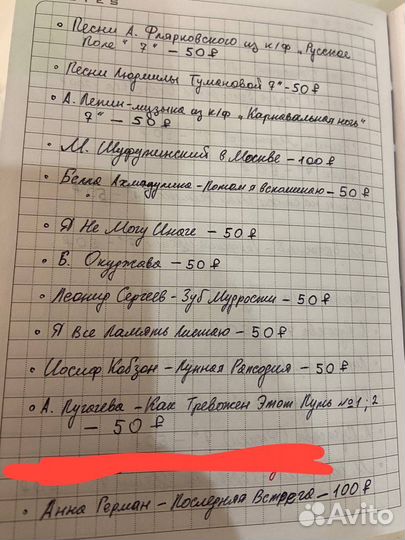 TES
• Песни А. Флярковского из к/ф „Русское
Поле" 7" – 50 ₽
• Песни Людмилы Тумановой 7"-50 ₽
• А. Лепин-музыка из к/ф „Карнавальная ночь"
7" – 50 ₽
• М. Шуфутинский в Москве – 100 ₽
• Белла Ахмадулина – Потом я вспоминаю – 50 ₽
• Я Не Могу Иначе – 50 ₽
• Б. Окуджава – 50 ₽
• Леонид Сергеев – Зуб Мудрости – 50 ₽
• Я Все Память Листаю – 50 ₽
• Иосиф Кобзон – Лунная Рапсодия – 50 ₽
• А. Пугачева – Как Тревожен Этот Путь №1; 2
– 50 ₽
• Анна Герман – Последняя Встреча – 100 ₽
Avito